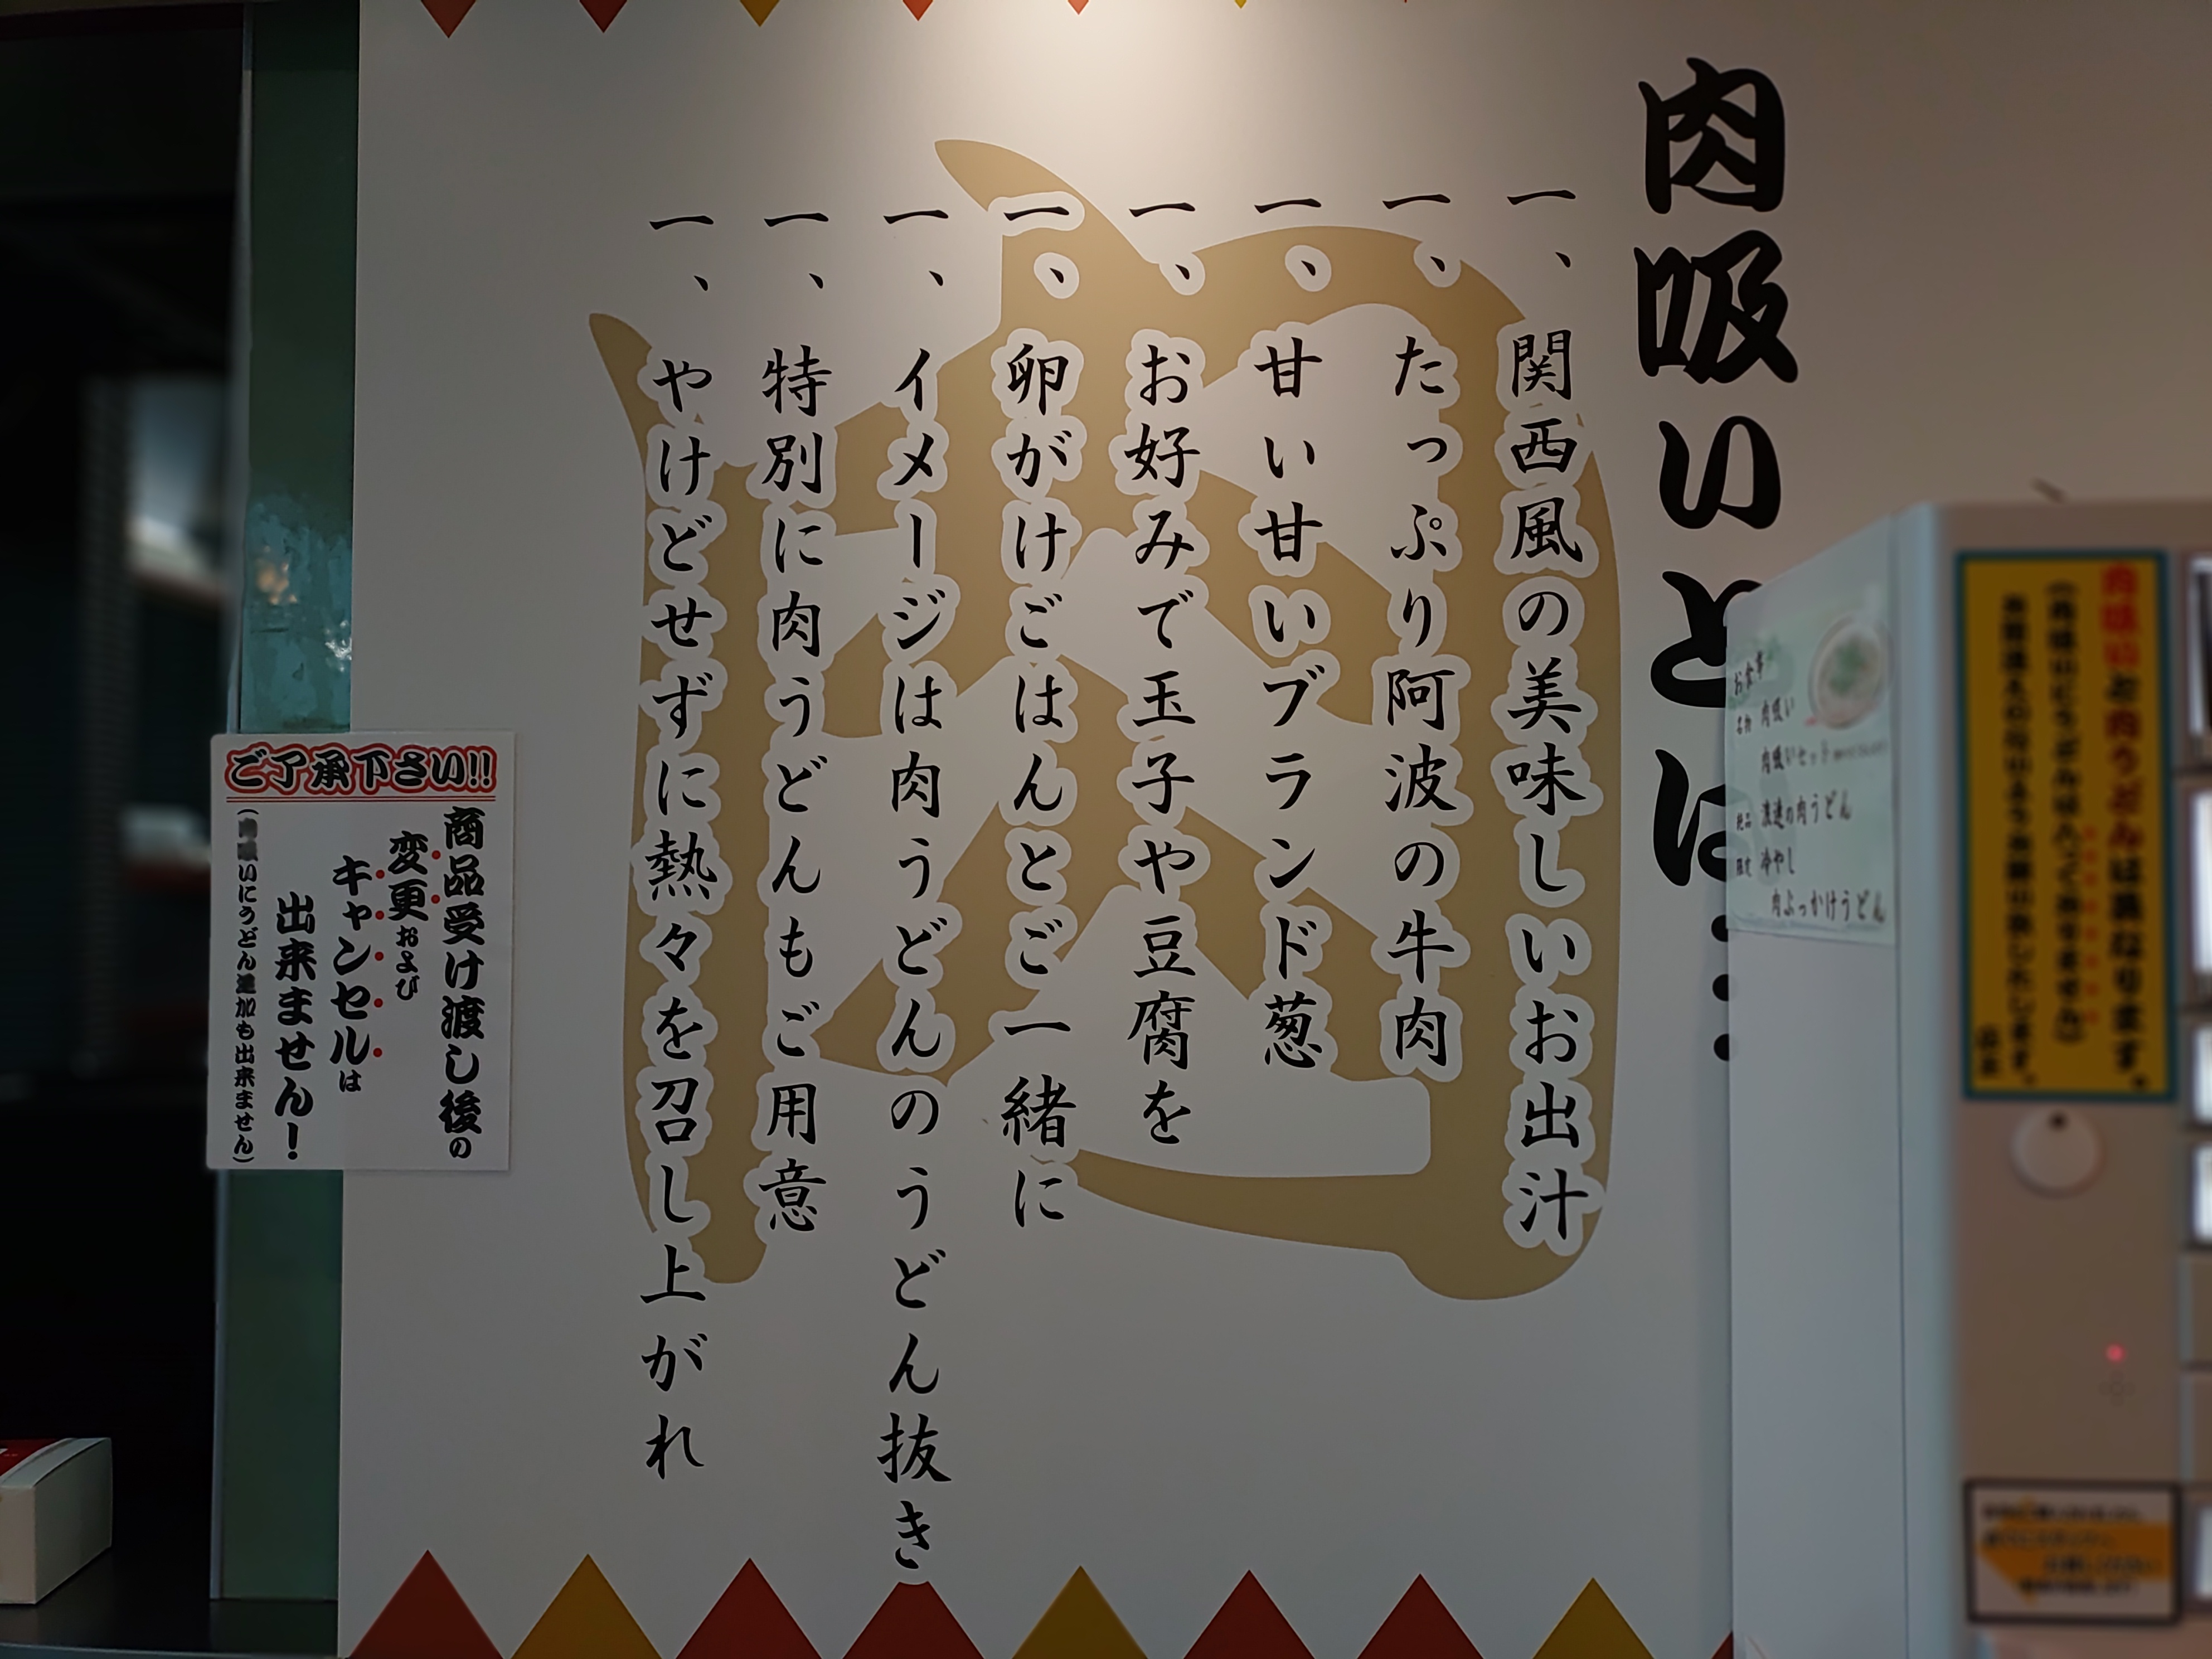 肉吸いとは…
一、関西風の美味しいお出汁
一、たっぷり阿波の牛肉
一、甘い甘いブランド葱
一、お好みで玉子や豆腐を
一、卵がけごはんとご一緒に
一、イメージは肉うどんのうどん抜き
一、特別に肉うどんもご用意
一、やけどせずに熱々を召し上がれ
ご了承下さい!!
商品受け渡し後の
変更および
キャンセルは
出来ません!
(肉吸いにうどん追加も出来ません)
お食事
名物 肉吸い
肉吸いセット
浪速の肉うどん
限定 冷やし
肉ぶっかけうどん
肉吸いと肉うどんは異なります。
(肉吸いにうどんは入ってありません)